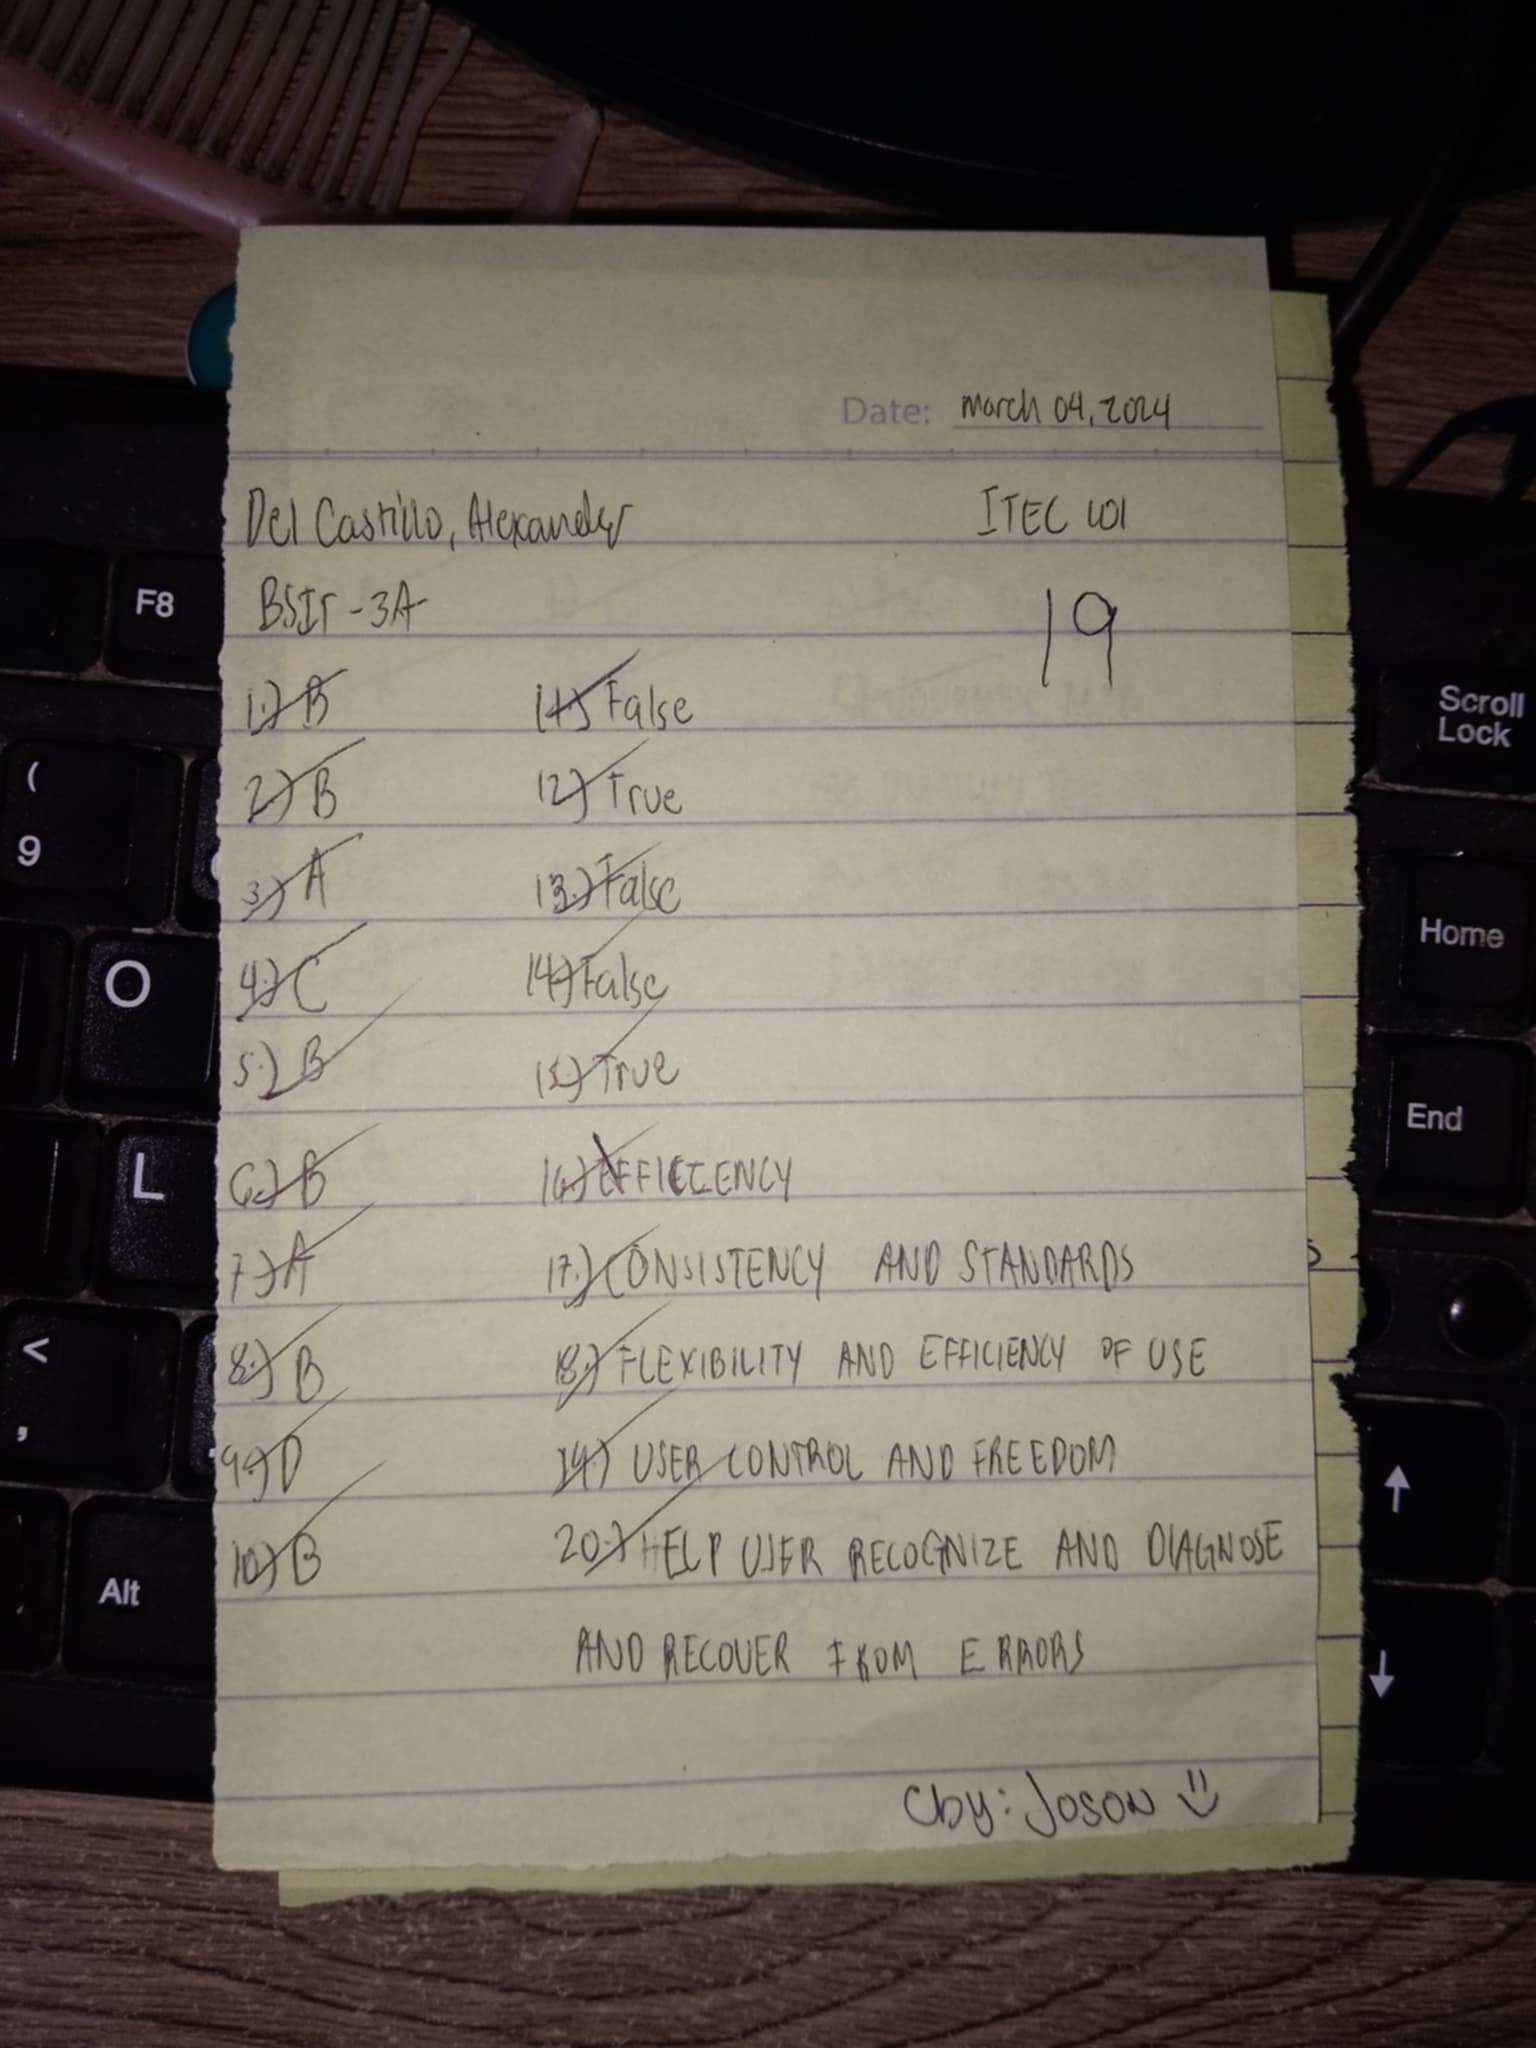 Date: March 04, 2024
Del Castillo, Alexander
ITEC 101
BSIT-3A
19
1.) B
2.) B
3.) A
4.) C
5.) B
6.) B
7.) A
8.) B
9.) D
10.) B
11.) False
12.) True
13.) False
14.) False
15.) True
16.) EFFICIENCY
17.) CONSISTENCY AND STANDARDS
18.) FLEXIBILITY AND EFFICIENCY OF USE
19.) USER CONTROL AND FREEDOM
20.) HELP USER RECOGNIZE AND DIAGNOSE
AND RECOVER FROM ERRORS
Cby: Joson
F8
(
9
O
L
<
,
Alt
Scroll
Lock
Home
End
↑
↓